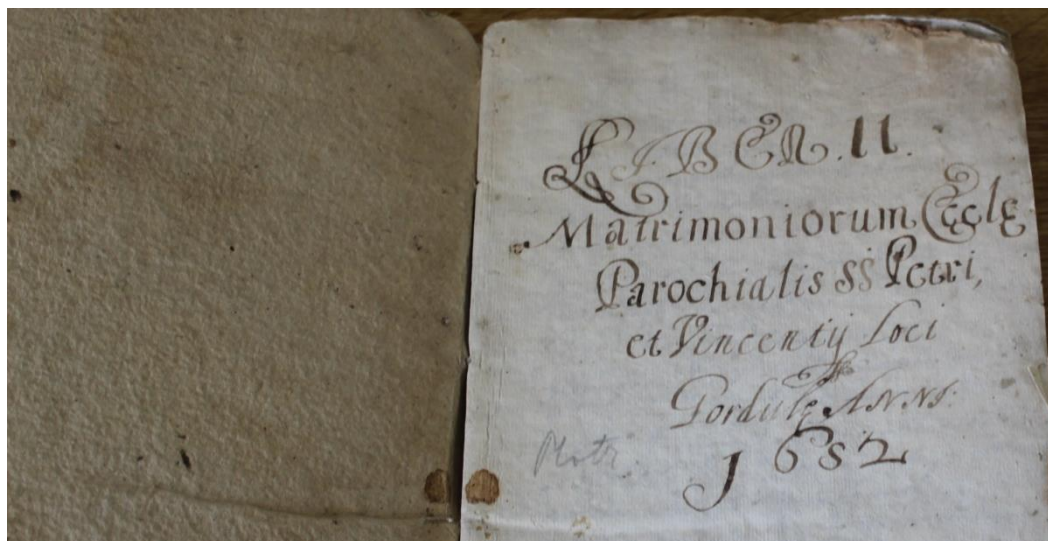 LIBER. II.
Matrimoniorum Eccle
Parochialis SS Petri,
et Vincentij Loci
Gordulę ANNI:
1682